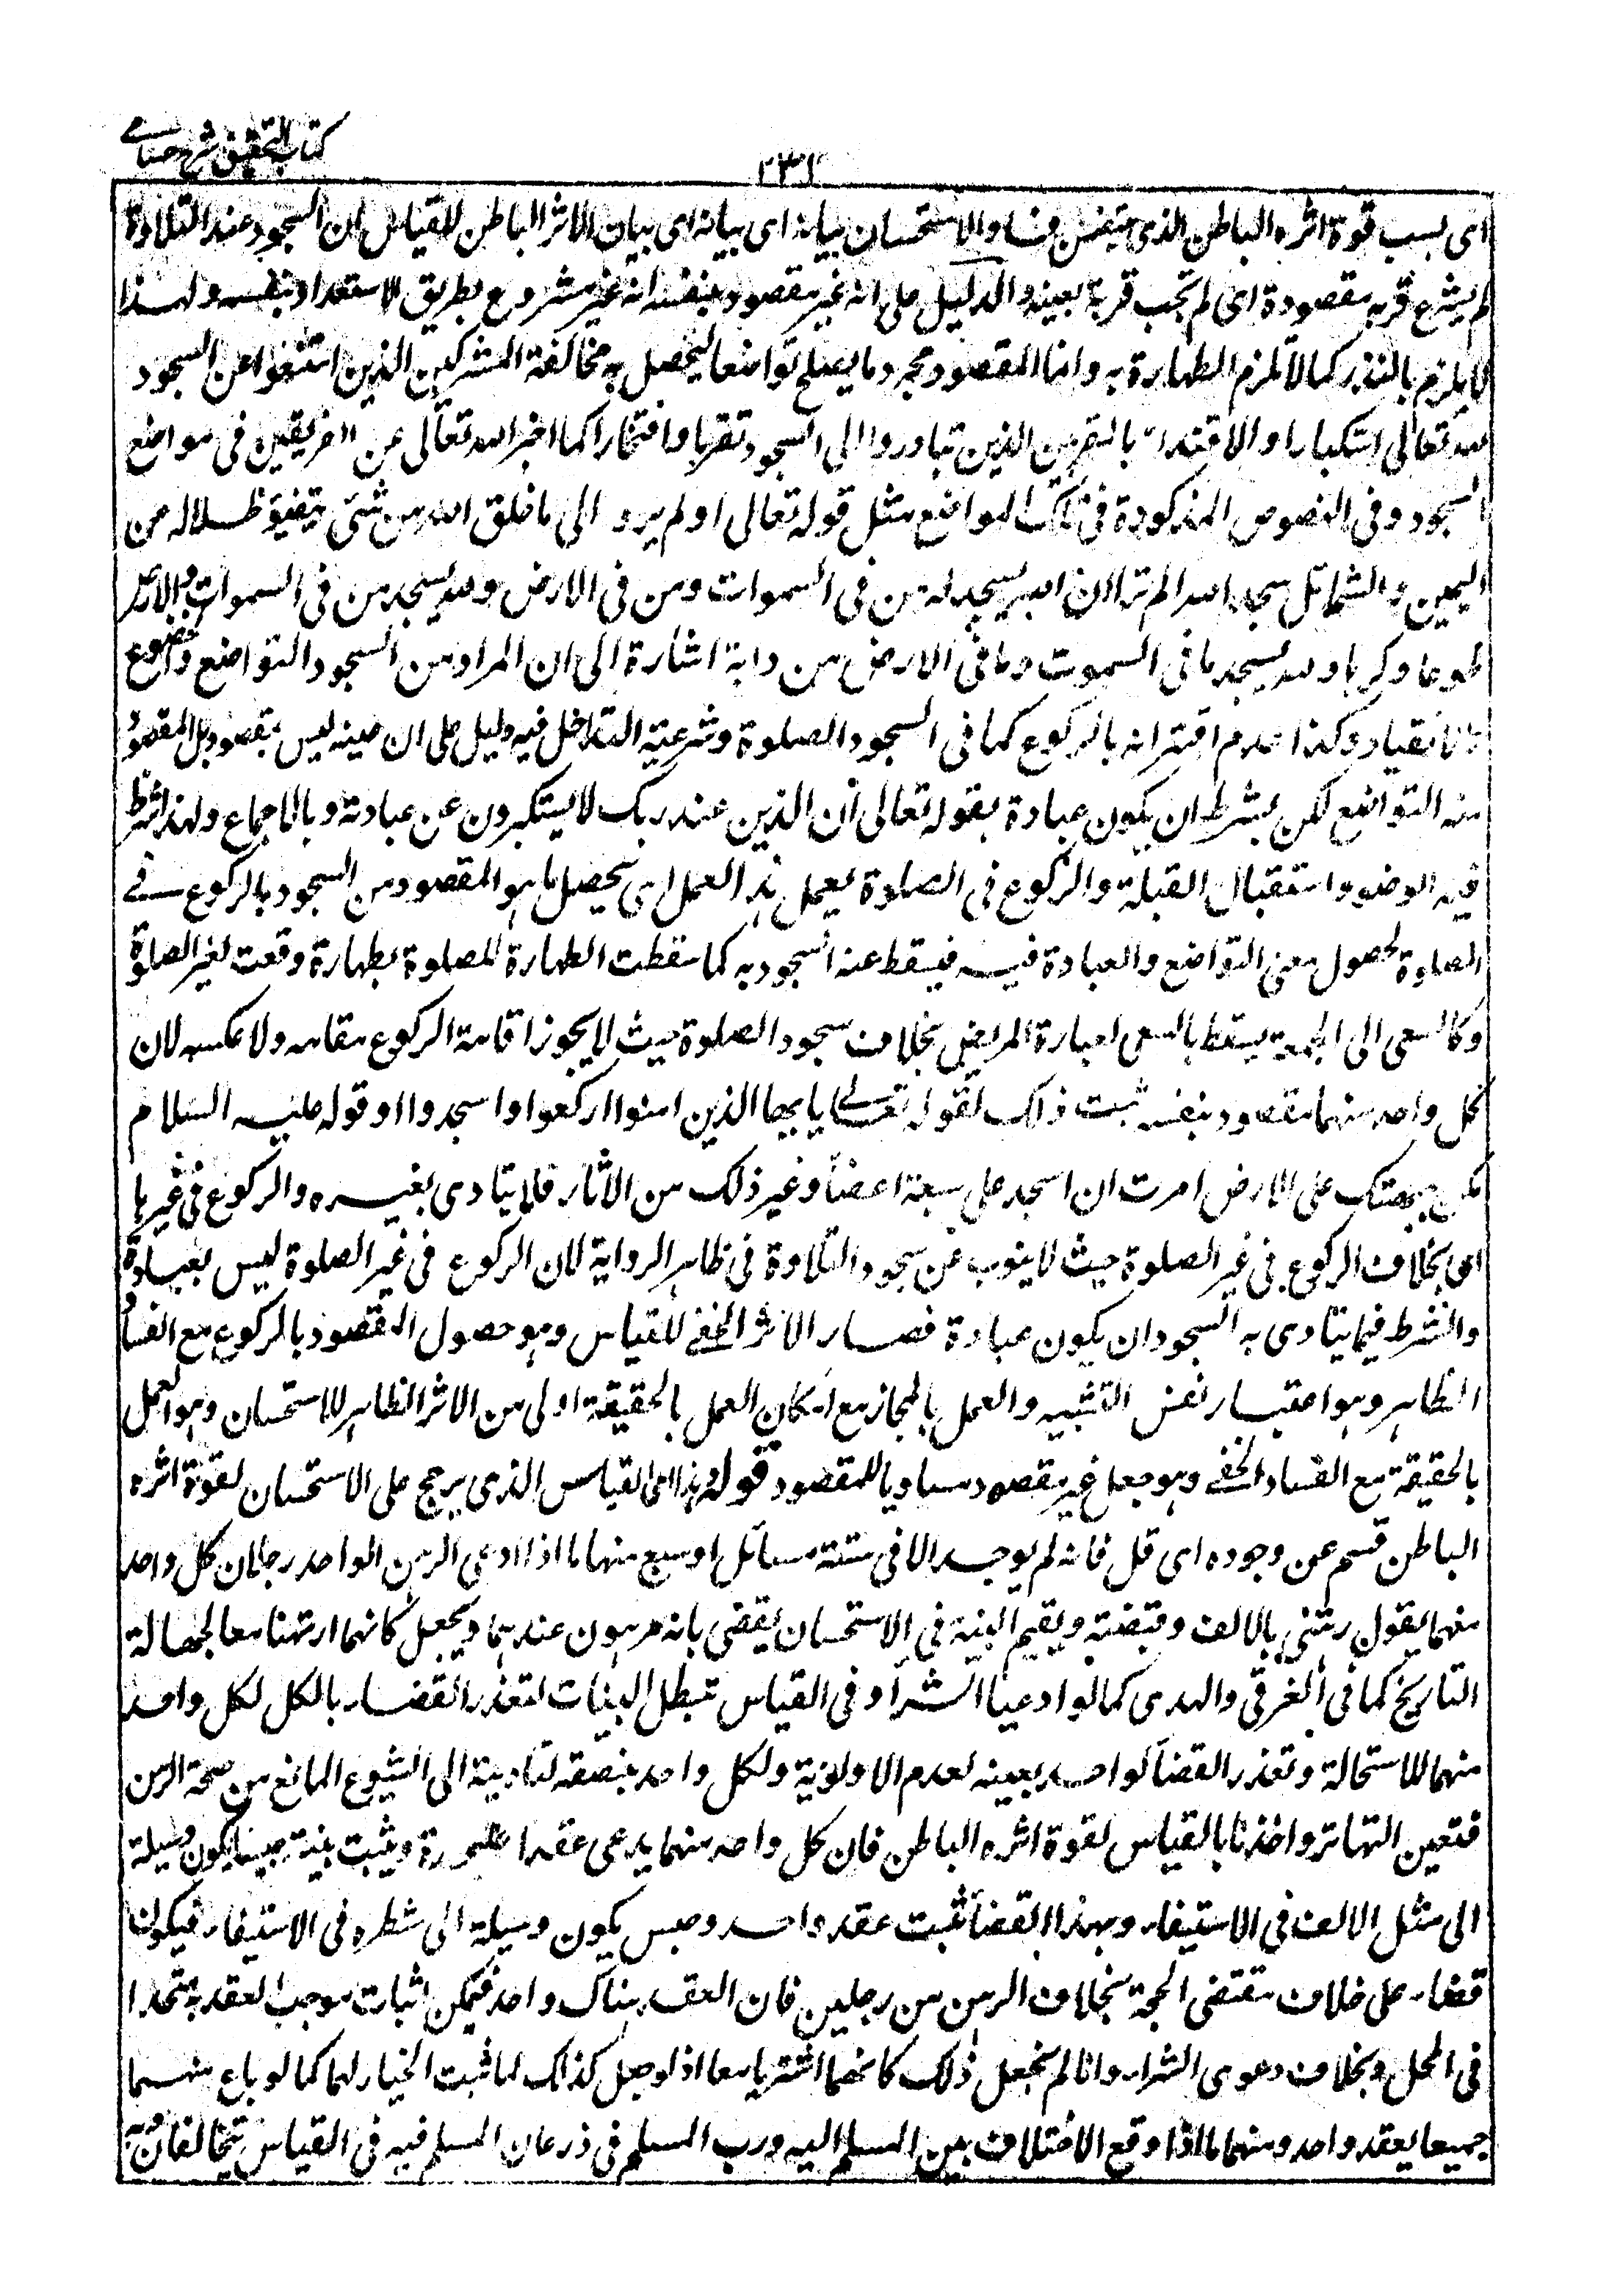 كتاب التحقيق شرح حسامے
٢٣٢
اى بسبب قوة اثره الباطن الذى يتضمن فسادا والاستحسان بيانه اى بيانه اى بيان الاثر الباطن للقياس ان السجود عند التلاوة
لم يشرع قربة مقصودة اى لم تجب قربة بعينه والدليل على انه غير مقصود بنفسه انه غير مشروع بطريق الاستعداد بنفسه ولهذا
لا يلزم بالنذر كما لا تلزم الطهارة به وانما المقصود مجرد ما يصلح تواضعا ليحصل به مخالفة المشركين الذين امتنعوا عن السجود
لله تعالى استكبارا والاقتداء بالمقربين الذين تبادروا الى السجود تقربا وافتخارا كما اخبر الله تعالى عن الفريقين فى مواضع
السجود وفى النصوص المذكورة فى تلك المواضع مثل قوله تعالى اولم يروا الى ما خلق الله من شئ يتفيؤ ظلاله عن
اليمين والشمائل سجدا لله الم تر ان الله يسجد له من فى السموات ومن فى الارض ولله يسجد من فى السموات والارض
طوعا وكرها ولله يسجد ما فى السموت وما فى الارض من دابة اشارة الى ان المراد من السجود التواضع والخضوع
والانقياد وكذا عدم اقترانه بالركوع كما فى السجود الصلوة وشرعية التداخل فيه دليل على ان عينه ليس بمقصود بل المقصود
منه التواضع لكن بشرط ان يكون عبادة بقوله تعالى ان الذين عند ربك لا يستكبرون عن عبادته وبالاجماع ولهذا شرط
فيه الوضوء واستقبال القبلة والركوع فى الصلوة يعمل هذا العمل اى يحصل ما هو المقصود من السجود بالركوع فے
الصلوة لحصول معنى التواضع والعبادة فيه فيسقط عنه السجود به كما سقطت الطهارة للصلوة بطهارة وقعت لغير الصلوة
وكالسعى الى الجمعة يسقط بالسعى لعيادة المريض بخلاف سجود الصلوة حيث لا يجوز اقامة الركوع مقامه ولا عكسه لان
كل واحد منهما مقصود بنفسه ثبت ذلك لقوله تعالے يايها الذين امنوا اركعوا واسجدوا وقوله عليه السلام
مكن جبهتك على الارض امرت ان اسجد على سبعة اعضاء وغير ذلك من الاثار فلا يتادى بغيره والركوع فى غيرها
اى بخلاف الركوع فى غير الصلوة حيث لا ينوب عن سجود التلاوة فى ظاهر الرواية لان الركوع فى غير الصلوة ليس بعبادة
والشرط فيما يتادى به السجود ان يكون عبادة فصار الاثر الخفے للقياس وهو حصول المقصود بالركوع مع الفساد
الظاهر وهو اعتبار نفس التشبيه والعمل بالمجاز مع امكان العمل بالحقيقة اولى من الاثر الظاهر للاستحسان وهو العمل
بالحقيقة مع الفساد الخفے وهو جعل غير مقصود مساويا للمقصود قوله وهذا اى القياس الذى يرجح على الاستحسان لقوة اثره
الباطن قسم عن وجوده اى قل فانه لم يوجد الا فى ستة مسائل او سبع منها ما اذا ادعى الرهن الواحد رجلان كل واحد
منهما يقول رهنتنى بالالف وقبضته ويقيم البينة فى الاستحسان يقضى بانه مرهون عندهما ويجعل كانهما ارتهنا معا لجهالة
التاريخ كما فى الغرقى والهدى كما لو ادعيا الشراء وفى القياس تبطل البينات لتعذر القضاء بالكل لكل واحد
منهما للاستحالة وتعذر القضاء لواحد بعينه لعدم الاولوية ولكل واحد بنصفه لتاديته الى الشيوع المانع من صحة الرهن
فتعين التهاتر واخذنا بالقياس لقوة اثره الباطن فان كل واحد منهما يدعى عقدا على حدة ويثبت بينته حبسا يكون وسيلة
الى مثل الالف فى الاستيفاء وبهذا القضاء ثبت عقد واحد وحبس يكون وسيلة الى شطره فى الاستيفاء فيكون
قضاء على خلاف مقتضى الحجة بخلاف الرهن من رجلين فان العقد هناك واحد فيمكن اثبات موجب العقد به متحدا
فى المحل وبخلاف دعوى الشراء وانا لم نجعل ذلك كانهما اشتريا معا اذ لو جعل كذلك لما ثبت الخيار لهما كما لو باع منهما
جميعا بعقد واحد ومنها ما اذا وقع الاختلاف بين المسلم اليه ورب المسلم فى ذرعان المسلم فيه فى القياس يتحالفان وبه